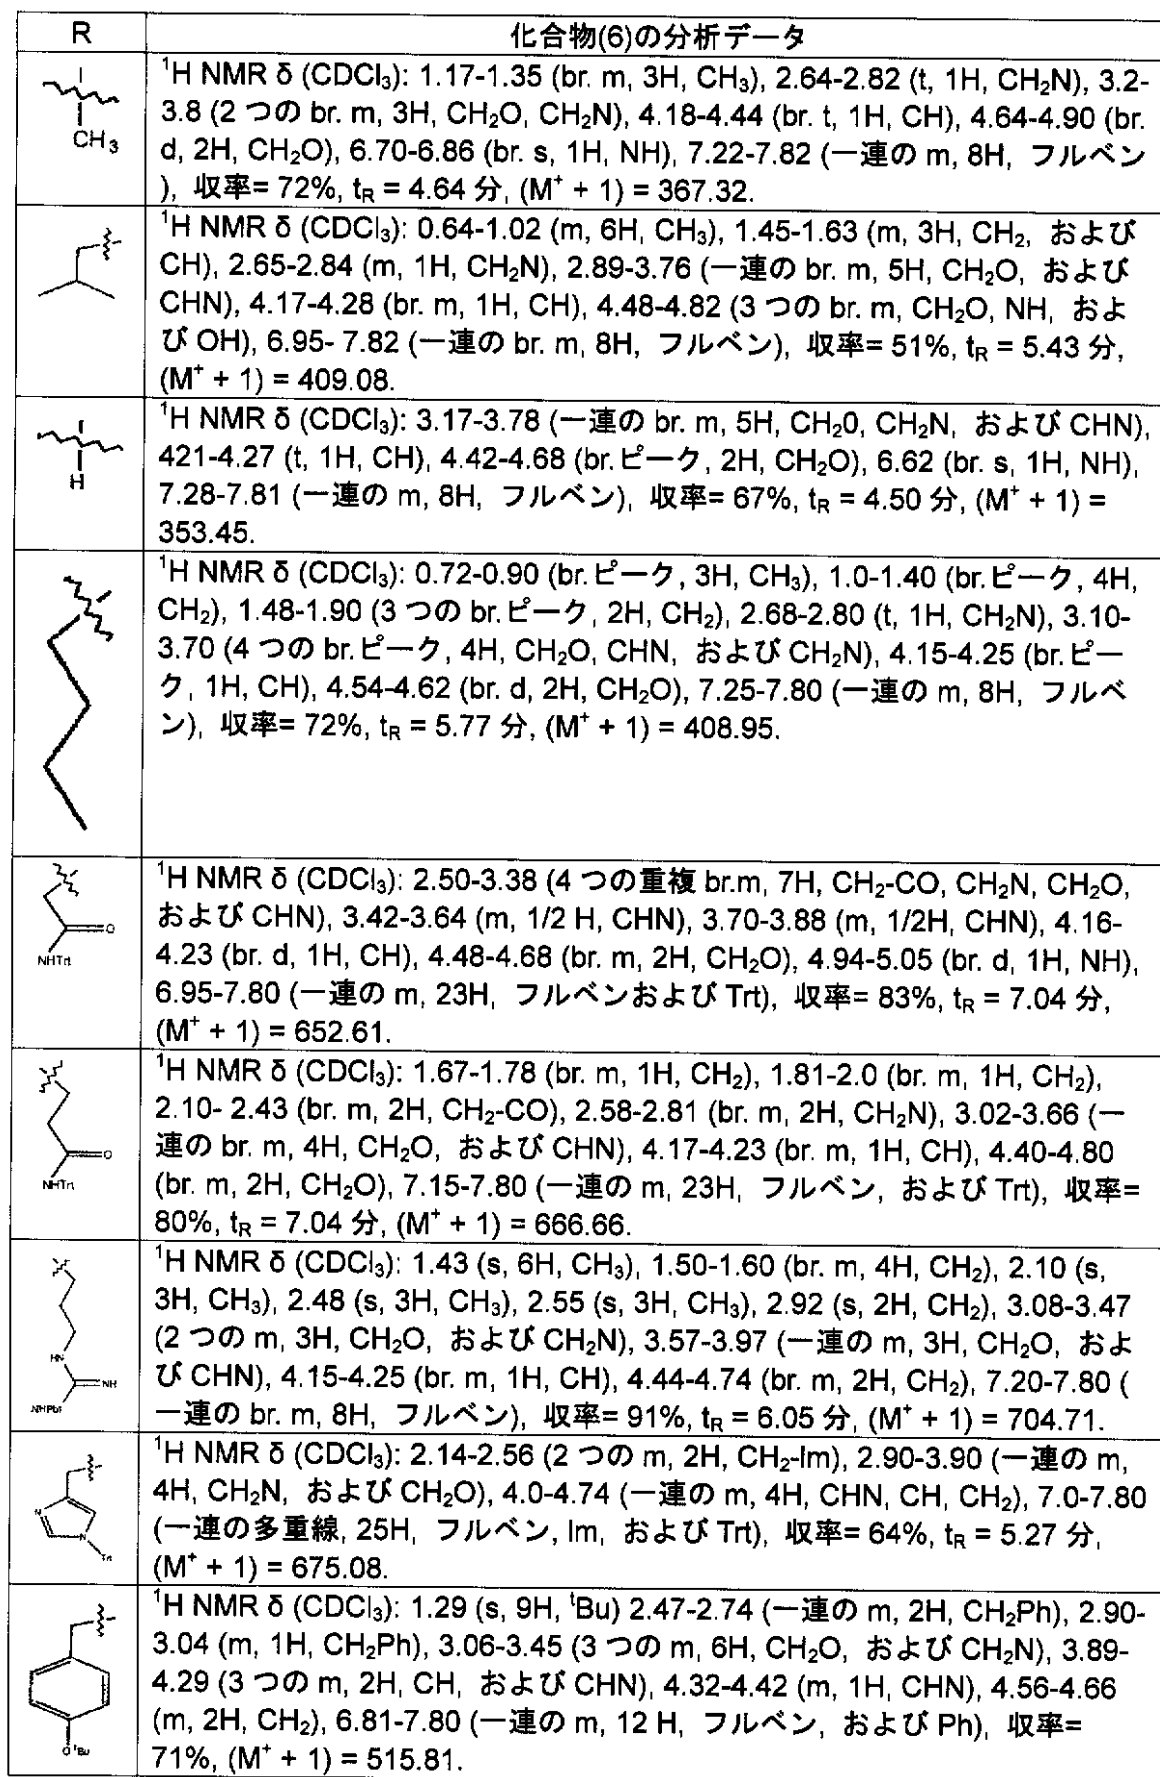 R
化合物(6)の分析データ
CH3
¹H NMR δ (CDCl₃): 1.17-1.35 (br. m, 3H, CH₃), 2.64-2.82 (t, 1H, CH₂N), 3.2-
3.8 (2 つの br. m, 3H, CH₂O, CH₂N), 4.18-4.44 (br. t, 1H, CH), 4.64-4.90 (br.
d, 2H, CH₂O), 6.70-6.86 (br. s, 1H, NH), 7.22-7.82 (一連の m, 8H, フルベン
), 収率= 72%, tR = 4.64 分, (M⁺ + 1) = 367.32.
¹H NMR δ (CDCl₃): 0.64-1.02 (m, 6H, CH₃), 1.45-1.63 (m, 3H, CH₂, および
CH), 2.65-2.84 (m, 1H, CH₂N), 2.89-3.76 (一連の br. m, 5H, CH₂O, および
CHN), 4.17-4.28 (br. m, 1H, CH), 4.48-4.82 (3 つの br. m, CH₂O, NH, およ
び OH), 6.95- 7.82 (一連の br. m, 8H, フルベン), 収率= 51%, tR = 5.43 分,
(M⁺ + 1) = 409.08.
H
¹H NMR δ (CDCl₃): 3.17-3.78 (一連の br. m, 5H, CH₂0, CH₂N, および CHN),
421-4.27 (t, 1H, CH), 4.42-4.68 (br.ピーク, 2H, CH₂O), 6.62 (br. s, 1H, NH),
7.28-7.81 (一連の m, 8H, フルベン), 収率= 67%, tR = 4.50 分, (M⁺ + 1) =
353.45.
¹H NMR δ (CDCl₃): 0.72-0.90 (br.ピーク, 3H, CH₃), 1.0-1.40 (br.ピーク, 4H,
CH₂), 1.48-1.90 (3 つの br.ピーク, 2H, CH₂), 2.68-2.80 (t, 1H, CH₂N), 3.10-
3.70 (4 つの br.ピーク, 4H, CH₂O, CHN, および CH₂N), 4.15-4.25 (br.ピー
ク, 1H, CH), 4.54-4.62 (br. d, 2H, CH₂O), 7.25-7.80 (一連の m, 8H, フルベ
ン), 収率= 72%, tR = 5.77 分, (M⁺ + 1) = 408.95.
O
NHTrt
¹H NMR δ (CDCl₃): 2.50-3.38 (4 つの重複 br.m, 7H, CH₂-CO, CH₂N, CH₂O,
および CHN), 3.42-3.64 (m, 1/2 H, CHN), 3.70-3.88 (m, 1/2H, CHN), 4.16-
4.23 (br. d, 1H, CH), 4.48-4.68 (br. m, 2H, CH₂O), 4.94-5.05 (br. d, 1H, NH),
6.95-7.80 (一連の m, 23H, フルベンおよび Trt), 収率= 83%, tR = 7.04 分,
(M⁺ + 1) = 652.61.
O
NHTrt
¹H NMR δ (CDCl₃): 1.67-1.78 (br. m, 1H, CH₂), 1.81-2.0 (br. m, 1H, CH₂),
2.10- 2.43 (br. m, 2H, CH₂-CO), 2.58-2.81 (br. m, 2H, CH₂N), 3.02-3.66 (一
連の br. m, 4H, CH₂O, および CHN), 4.17-4.23 (br. m, 1H, CH), 4.40-4.80
(br. m, 2H, CH₂O), 7.15-7.80 (一連の m, 23H, フルベン, および Trt), 収率=
80%, tR = 7.04 分, (M⁺ + 1) = 666.66.
HN
NH
NHPbf
¹H NMR δ (CDCl₃): 1.43 (s, 6H, CH₃), 1.50-1.60 (br. m, 4H, CH₂), 2.10 (s,
3H, CH₃), 2.48 (s, 3H, CH₃), 2.55 (s, 3H, CH₃), 2.92 (s, 2H, CH₂), 3.08-3.47
(2 つの m, 3H, CH₂O, および CH₂N), 3.57-3.97 (一連の m, 3H, CH₂O, およ
び CHN), 4.15-4.25 (br. m, 1H, CH), 4.44-4.74 (br. m, 2H, CH₂), 7.20-7.80 (
一連の br. m, 8H, フルベン), 収率= 91%, tR = 6.05 分, (M⁺ + 1) = 704.71.
N
N
Trt
¹H NMR δ (CDCl₃): 2.14-2.56 (2 つの m, 2H, CH₂-Im), 2.90-3.90 (一連の m,
4H, CH₂N, および CH₂O), 4.0-4.74 (一連の m, 4H, CHN, CH, CH₂), 7.0-7.80
(一連の多重線, 25H, フルベン, Im, および Trt), 収率= 64%, tR = 5.27 分,
(M⁺ + 1) = 675.08.
OᵗBu
¹H NMR δ (CDCl₃): 1.29 (s, 9H, ᵗBu) 2.47-2.74 (一連の m, 2H, CH₂Ph), 2.90-
3.04 (m, 1H, CH₂Ph), 3.06-3.45 (3 つの m, 6H, CH₂O, および CH₂N), 3.89-
4.29 (3 つの m, 2H, CH, および CHN), 4.32-4.42 (m, 1H, CHN), 4.56-4.66
(m, 2H, CH₂), 6.81-7.80 (一連の m, 12 H, フルベン, および Ph), 収率=
71%, (M⁺ + 1) = 515.81.